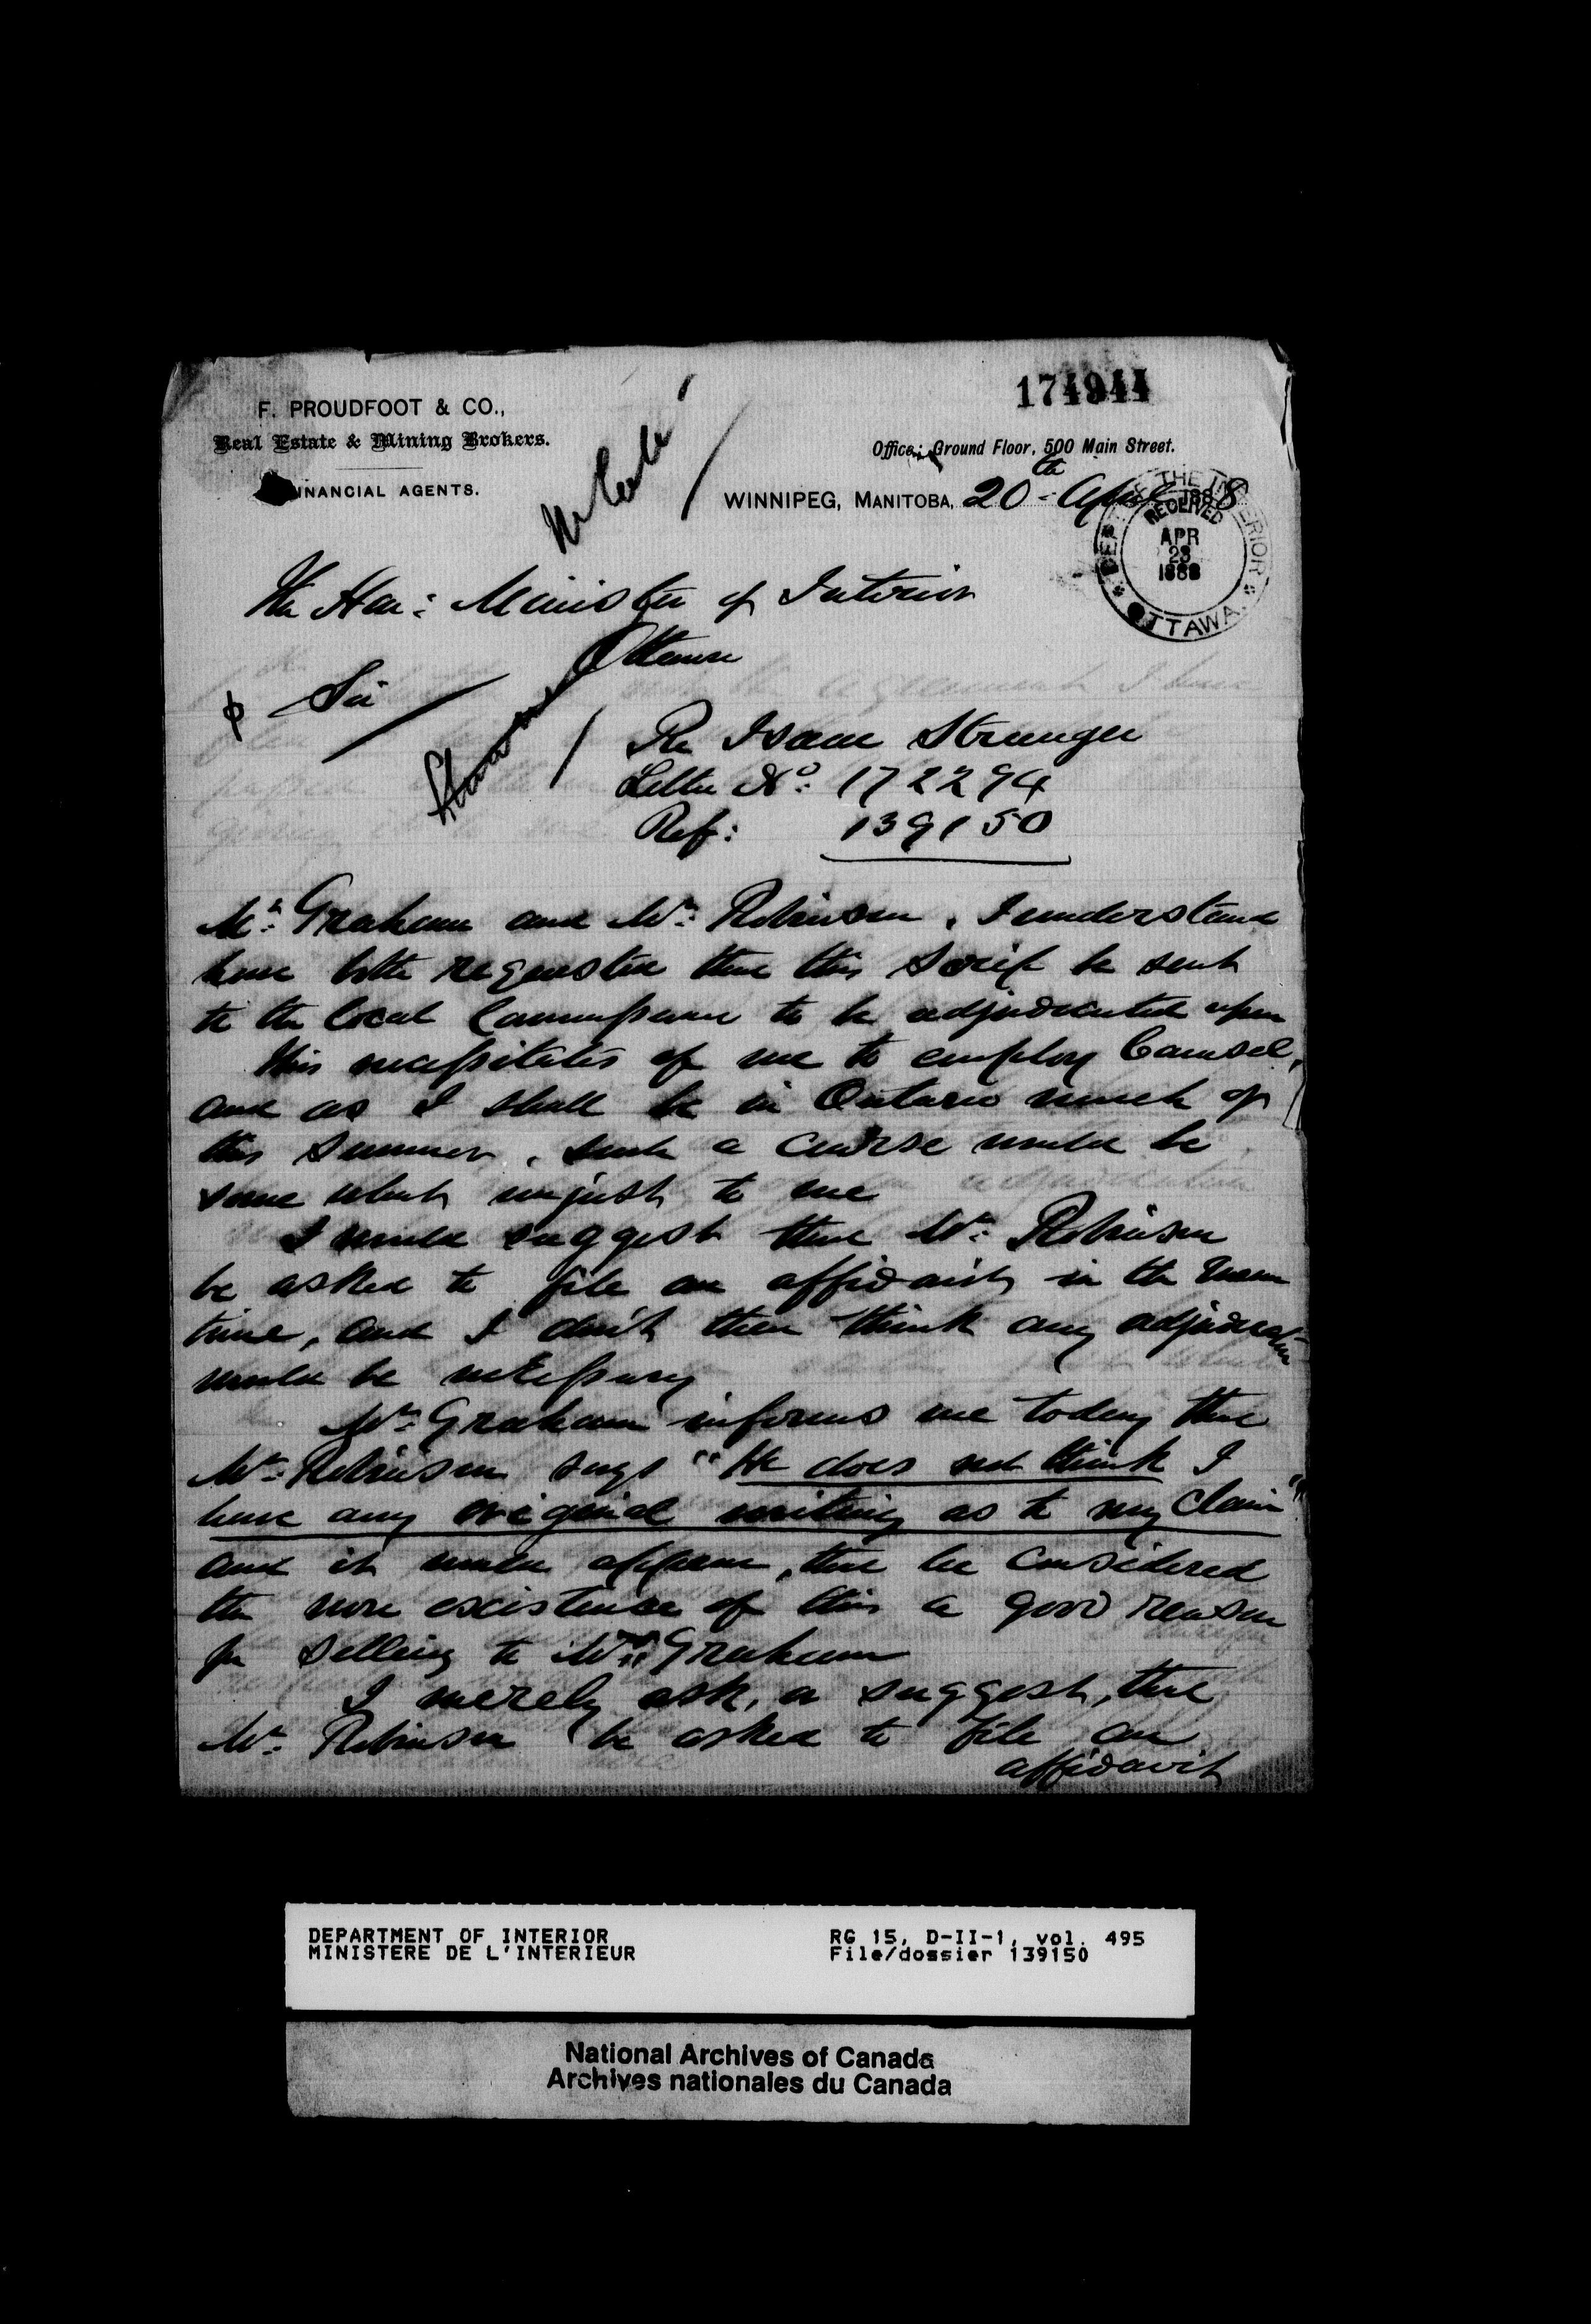 174944
F. PROUDFOOT & CO.,
Real Estate & Mining Brokers.
Office: Ground Floor, 500 Main Street.
FINANCIAL AGENTS.
WINNIPEG, MANITOBA, 20th April 1888
DEPT OF THE INTERIOR
RECEIVED
APR
23
1888
OTTAWA.
The Hon: Minister of Interior
Ottawa
Sir
Re Isaac Strunger
Letter No: 172294
Ref: 139150
Mr: Graham and Mr: Robinson, I understand
have both requested that this Scrip be sent
to the local Commissioner to be adjudicated upon
This necessitates of me to employ Counsel,
and as I shall be in Ontario much of
this summer, such a course would be
some what unjust to me
I would suggest that Mr: Robinson
be asked to file an affidavit in the mean
time, and I don't then think any adjudication
would be necessary
Mr: Graham informs me today that
Mr: Robinson says "He does not think I
have any original writing as to my Claim"
and it would appear, that he considered
the non existence of this a good reason
for selling to Mr: Graham
I merely ask, or suggest, that
Mr: Robinson be asked to file an
affidavit
DEPARTMENT OF INTERIOR
MINISTERE DE L'INTERIEUR
RG 15, D-II-1, vol. 495
File/dossier 139150
National Archives of Canada
Archives nationales du Canada